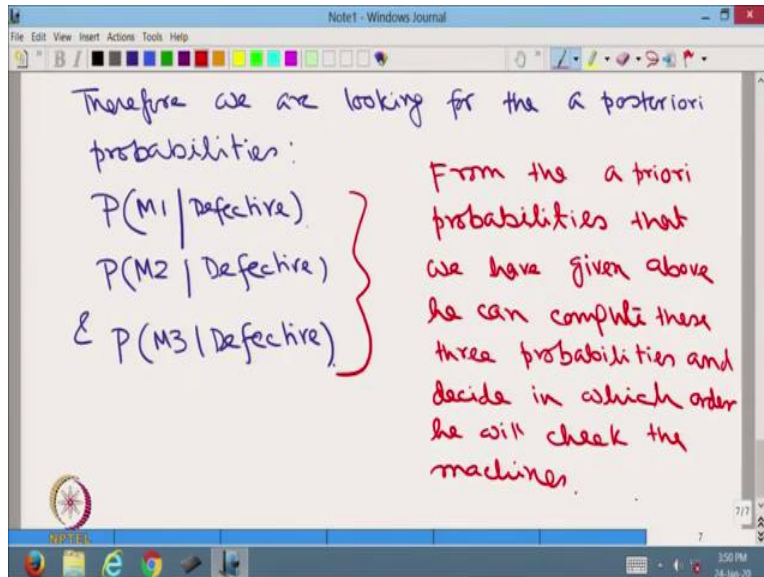 Note1 - Windows Journal
File Edit View Insert Actions Tools Help
Therefore we are looking for the a posteriori
probabilities:
P(M1 | Defective)
P(M2 | Defective)
& P(M3 | Defective)
From the a priori
probabilities that
we have given above
he can compute these
three probabilities and
decide in which order
he will check the
machines.
NPTEL
7/7
7
3:50 PM
24-Jan-20